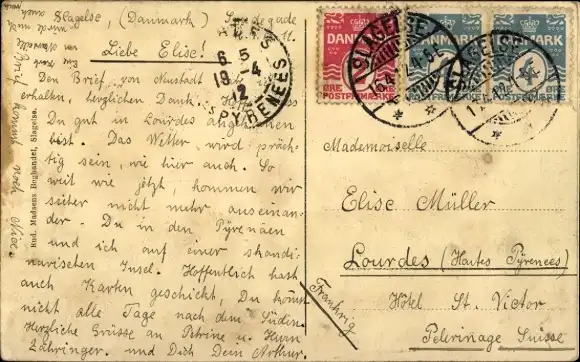 Slagelse, (Danmark)
Liebe Elise!
Den Brief von Neustadt
erhalten, herzlichen Dank.
Du gut in Lourdes angekommen
bist. Das Wetter, wird präch-
tig sein, wie hier auch. So
weit wie jetzt, kommen wir
seiter nicht mehr auseinan-
der. Du in den Pyrenäen
und ich auf einer skandi-
navischen Insel. Hoffentlich hast
auch Karten geschickt, Du kommst
nicht alle Tage nach dem Süden.
Herzliche Grüsse an Petrine u. Herrn
Zähringer. und Dich Dein Arthur.
Brief kommt noch
Rud. Madsens Boghandel, Slagelse.
DANMARK
ØRE
POSTFRIMÆRKE
DANMARK
ØRE
POSTFRIMÆRKE
DANMARK
4
ØRE
POSTFRIMÆRKE
SLAGELSE
SLAGELSE
PYRENEES
Mademoiselle
Elise Müller
Lourdes (Hautes Pyrenees)
Hôtel St. Victor
Pelerinage Suisse
Frankrig